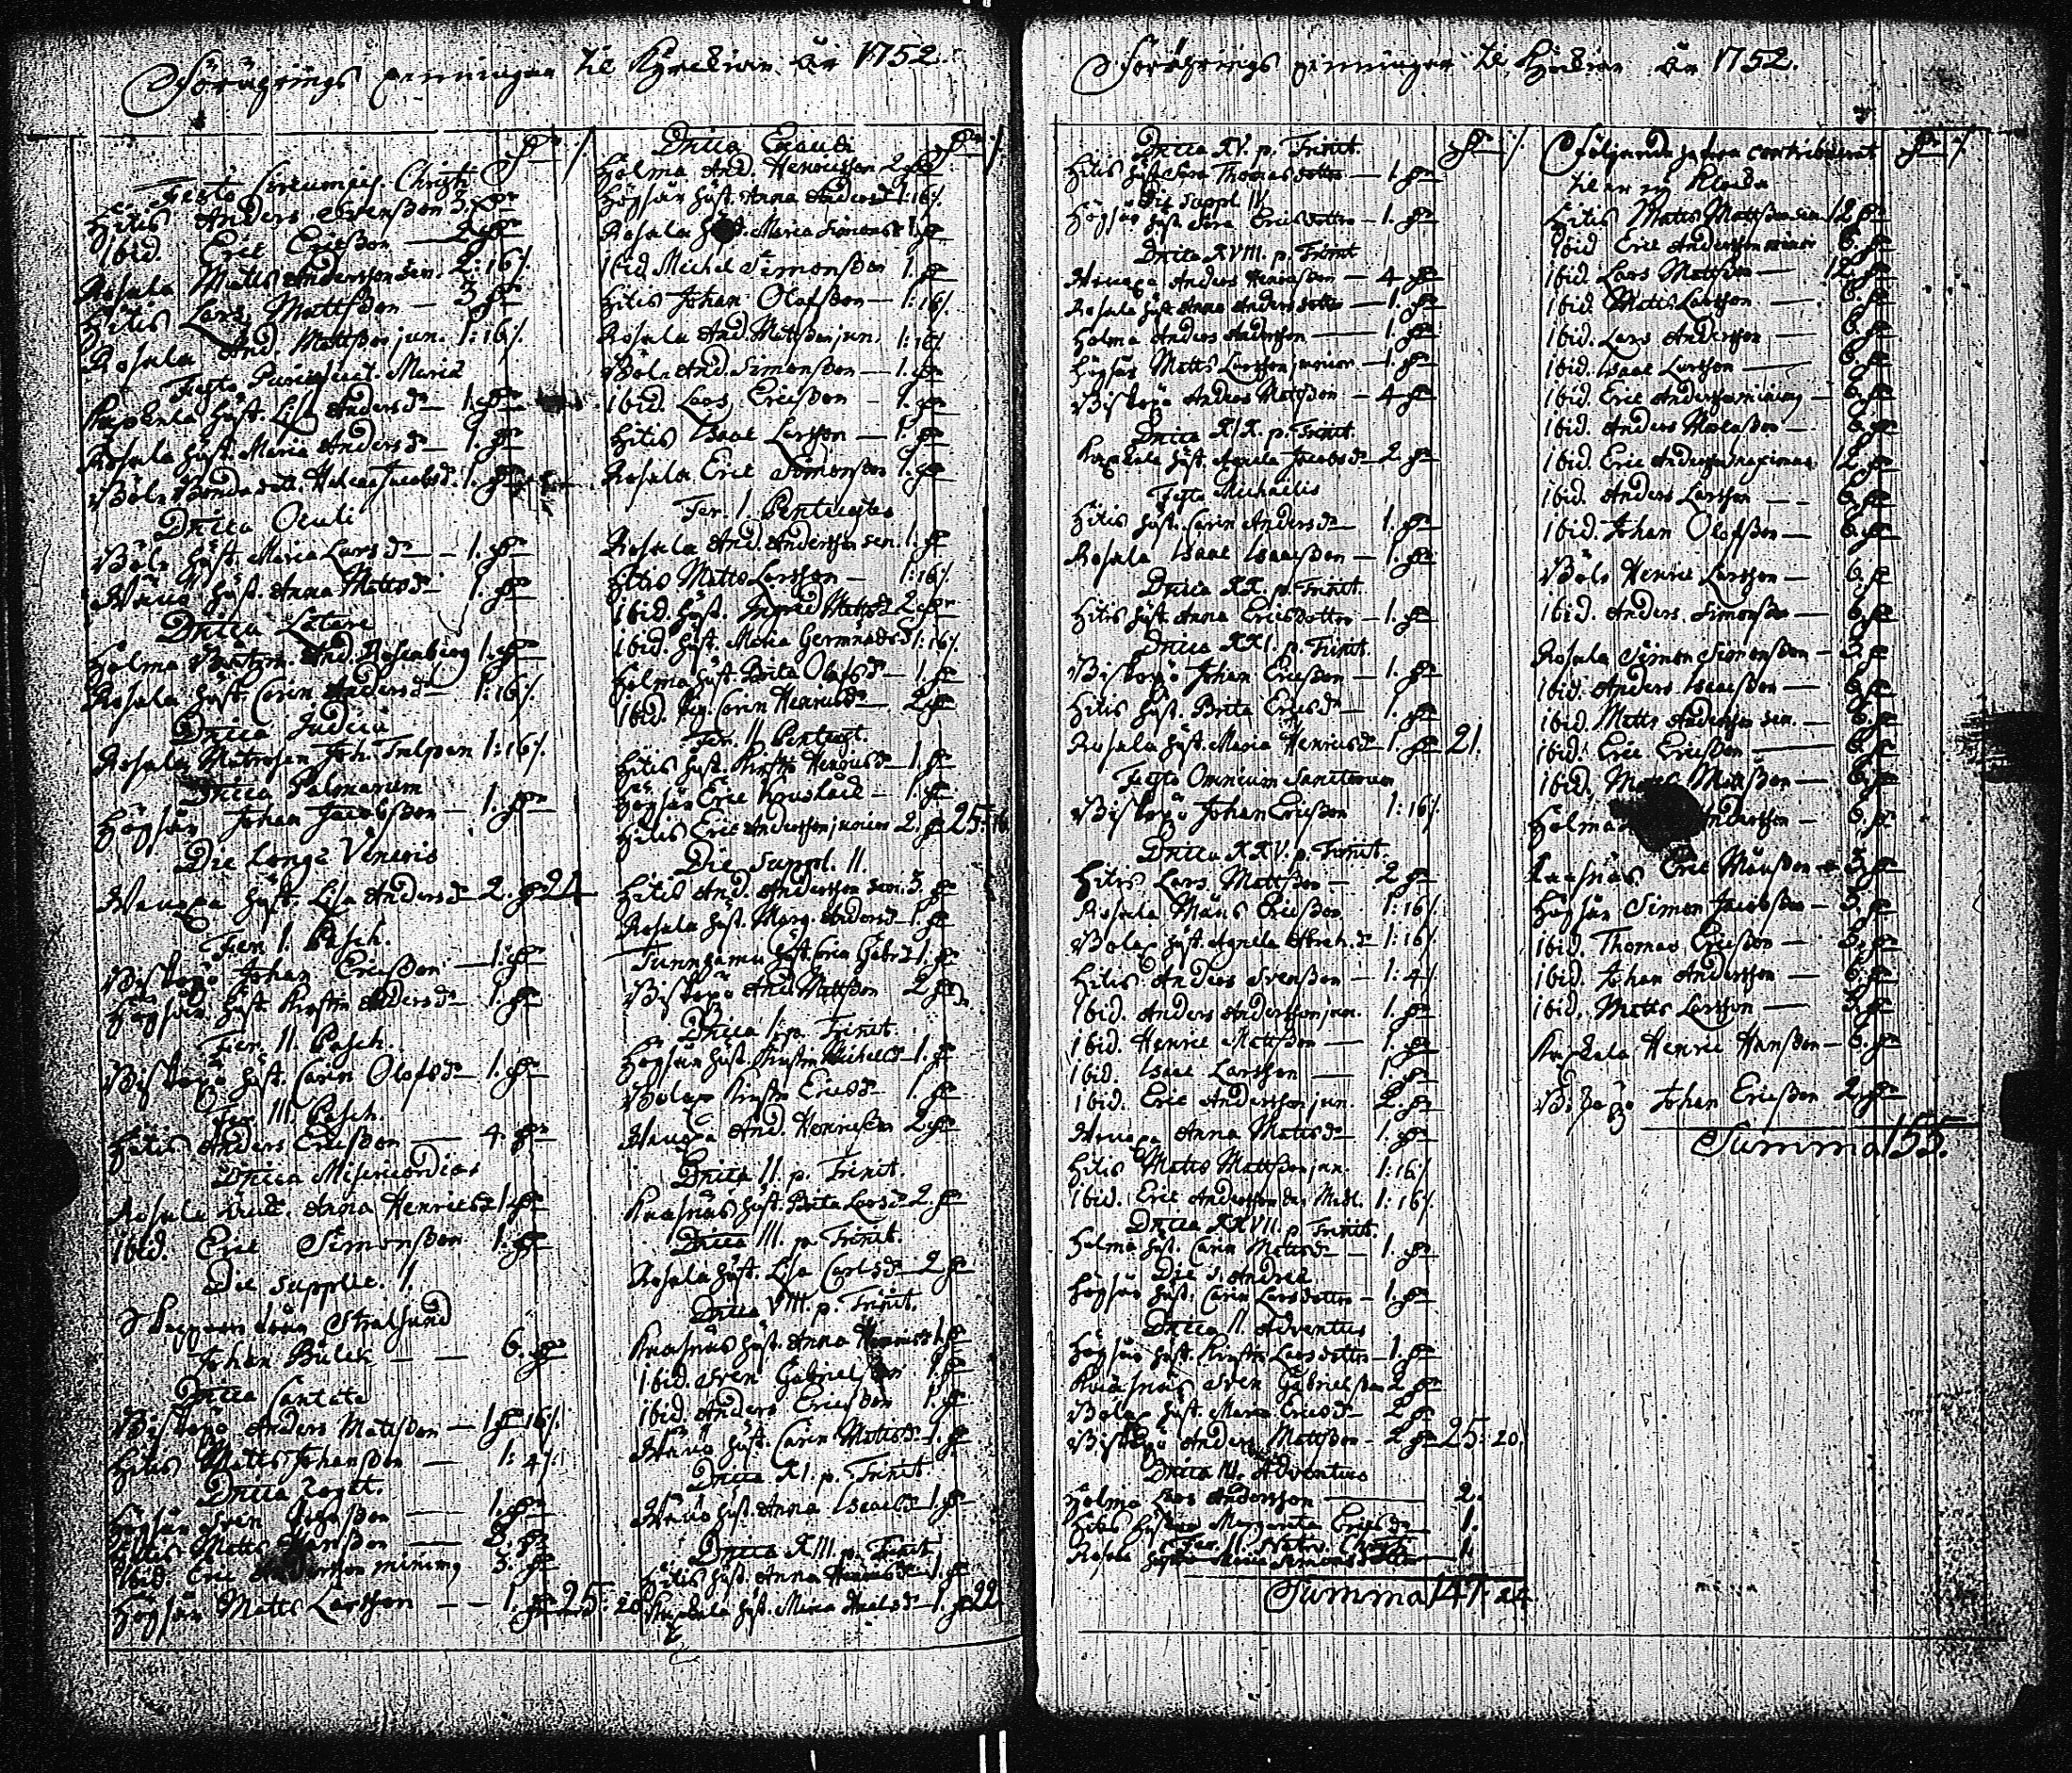 Förährings penningar til Kyrckian år 1752.
Festo Circumcis. Christi
Hitis Anders Svensson 3.
Ibid. Eric Ericsson — 2
Rosala Matts Andersson sen. 2:16
Hitis Lars Mattsson — 3
Rosala And. Mattsson jun. 1:16
Festo Purificat. Mariæ
hust. Lisa Andersd:r — 1.
Rosala hust. Maria Andersd:r — 1.
Böle Helena Jacobsd. 1.
Dnica Oculi
Böle hust. Maria Larsd:r — 1.
hust. Anna Mattsd:r 1.
Dnica Lætare
Holma And. Rosenberg 1.
Rosala hust. Carin Andersd:r 1:16
Dnica Judica
Rosala Matrosen Joh. Tulpan 1:16
Dnica Palmarum
Högsar Johan Jacobsson — 1.
Die Longæ Veneris
hust. Lisa Andersd:r 2. 24
Fer. I. Pasch.
Biskopö Johan Ericsson — 1.
Högsar hust. Kirstin Andersd:r 1.
Fer. II. Pasch.
Biskopö hust. Carin Olofsd:r — 1.
Fer. III. Pasch.
Hitis Anders Ericsson — 4.
Dnica Misericordias
Rosala Anna Henricsd:r 1
Ibid. Eric Simonsson 1.
Die Supplic. I.
Skepparen från Stralsund
Johan Bülck — — 6.
Dnica Cantate
Biskopö Anders Mattsson — 1. 16
Hitis Matts Johansson — 1:4
Dnica Rogat.
Högsar Sven Johansson — 1.
Hitis Matts Larsson — 3.
Ibid. Eric Andersson minimus 3.
Högsar Matts Larsson — — 1. 25:20
Dnica Exaudi
Holma And. Henricsson 2
Högsar hust. Anna Andersd:r 1:16
Rosala hust. Maria Simonsd:r 1.
Ibid Michel Simonsson 1.
Hitis Johan Olofsson — 1:16
Rosala And. Mattsson jun. 1:16
Böle And. Simonsson — 1.
Ibid. Lars Ericsson — 1.
Hitis Isaac Larsson — 1.
Rosala Eric Simonsson 1.
Fer. I. Pentecostes
Rosala And. Andersson sen. 1.
Hitis Matts Larsson — 1:16
Ibid. hust. Ingrid Mattsd:r 2.
Ibid. hust. Maria Germundsd:r 1:16
Holma hust. Brita Olofsd:r — 1.
Ibid. Pig. Carin Henricsd:r — 2
Fer. II. Pentecost.
Hitis hust. Kirstin Henricsd:r — 1.
Högsar Eric — 1.
Hitis Eric Andersson junior 2. 25:16
Die Suppl. II.
Hitis And. Andersson sen. 3.
Rosala hust. Marg. Andersd:r 1.
hust. Carin Gabr:d:r 1.
Biskopö And. Mattsson 2.
Dnica I. p. Trinit.
Högsar hust. Kirstin Michelsd:r 1.
Bolax Kirstin Ericsd:r 1.
And. Henricsson 2
Dnica II. p. Trinit.
hust. Brita Larsd:r 2.
Dnica III. p. Trinit.
Rosala hust. Lisa Carlsd:r 2
Dnica VIII. p. Trinit.
hust. Anna Henricsd:r 1.
Ibid. Sven Gabrielsson 1.
Ibid. Anders Ericsson 1.
hust. Carin Mattsd:r 1.
Dnica XI. p. Trinit.
hust. Anna Isaacsd:r 1.
Dnica XIII. p. Trinit.
Hitis hust. Anna Henricsd:r 1.
hust. Maria 1. 22
Förährings penningar til Kyrckian år 1752.
Dnica XV. p. Trinit.
Hitis hust. Sara Thomasdotter — 1.
Die Suppl. IV.
Högsar hust. Sara Ericsdotter — 1.
Dnica XVIII. p. Trinit
Anders Henricsson — 4.
Rosala hust. Anna Andersdotter — 1.
Holma Anders Andersson — 1.
Högsar Matts Larsson junior — 1.
Biskopö Anders Mattsson — 4
Dnica XIX. p. Trinit.
hust. Agneta Jacobsd:r 2.
Festo Michaelis
Hitis hust. Carin Andersd:r 1.
Rosala Isaac Isaacsson — 1.
Dnica XX. p. Trinit.
Hitis hust. Anna Ericsdotter — 1.
Dnica XXI. p. Trinit.
Biskopö Johan Ericsson — 1.
Hitis hust. Brita Ericsd:r 1.
Rosala hust. Maria Henricsd:r 1. 21.
Festo Omnium Sanctorum
Biskopö Johan Ericsson 1:16
Dnica XXV. p. Trinit.
Hitis Lars Mattsson — 2.
Rosala Måns Ericsson 1:16
Bolax hust. Agneta Abrah.d:r 1:16
Hitis Anders Svensson — 1:4
Ibid. Anders Andersson jun. 1.
Ibid. Henric Mattsson — 1.
Ibid. Isaac Larsson — 1.
Ibid. Eric Andersson jun. 2.
Anna Mattsd:r 1.
Hitis Matts Mattsson jun. 1:16
Ibid. Eric Andersson 1:16
Dnica XXVII. p. Trinit.
Holma hust. Carin Mattsd:r — 1.
Die S. Andreæ
Högsar hust. Carin Larsdotter — 1.
Dnica II. Adventus
Högsar hust. Kirstin Larsdotter — 1.
Sven Gabrielsson 2
Bolax hust. Maria Ericsd:r 2
Biskopö Anders Mattsson — 2. 25:20.
Dnica III. Adventus
Holma Lars Andersson 2.
Hitis hustru Margareta Ericsd:r 1.
Fer. II. Nativ. Christi
Rosala hustru Maria Simonsdotter 1.
Summa 147:24
Följande hafva contribuerat
til en ny Klocka
Hitis Matts Mattsson sen. 12
Ibid Eric Andersson minor 6.
Ibid. Lars Mattsson — 12.
Ibid. Matts Larsson — 6.
Ibid. Lars Andersson — 6.
Ibid. Isaac Larsson — 6.
Ibid. Eric Andersson minimus — 6.
Ibid. Anders — 6.
Ibid. Eric Andersson maximus 12.
Ibid. Anders Larsson — 6.
Ibid. Johan Olofsson — 6.
Böle Henric Larsson — 6.
Ibid. Anders Simonsson — 6.
Rosala Simon Simonsson — 3
Ibid. Anders Isaacsson — 6.
Ibid. Matts Andersson sen. — 6.
Ibid. Eric Ericsson — 6.
Ibid. Mattsson — 6.
Holma Andersson — 6.
Eric Månsson 3.
Högsar Simon Jacobsson — 3.
Ibid. Thomas Ericsson — 3.
Ibid. Johan Andersson — 6.
Ibid. Matts Larsson — 3.
Henric Hansson — 6.
Johan Ericsson 2.
Summa 155.